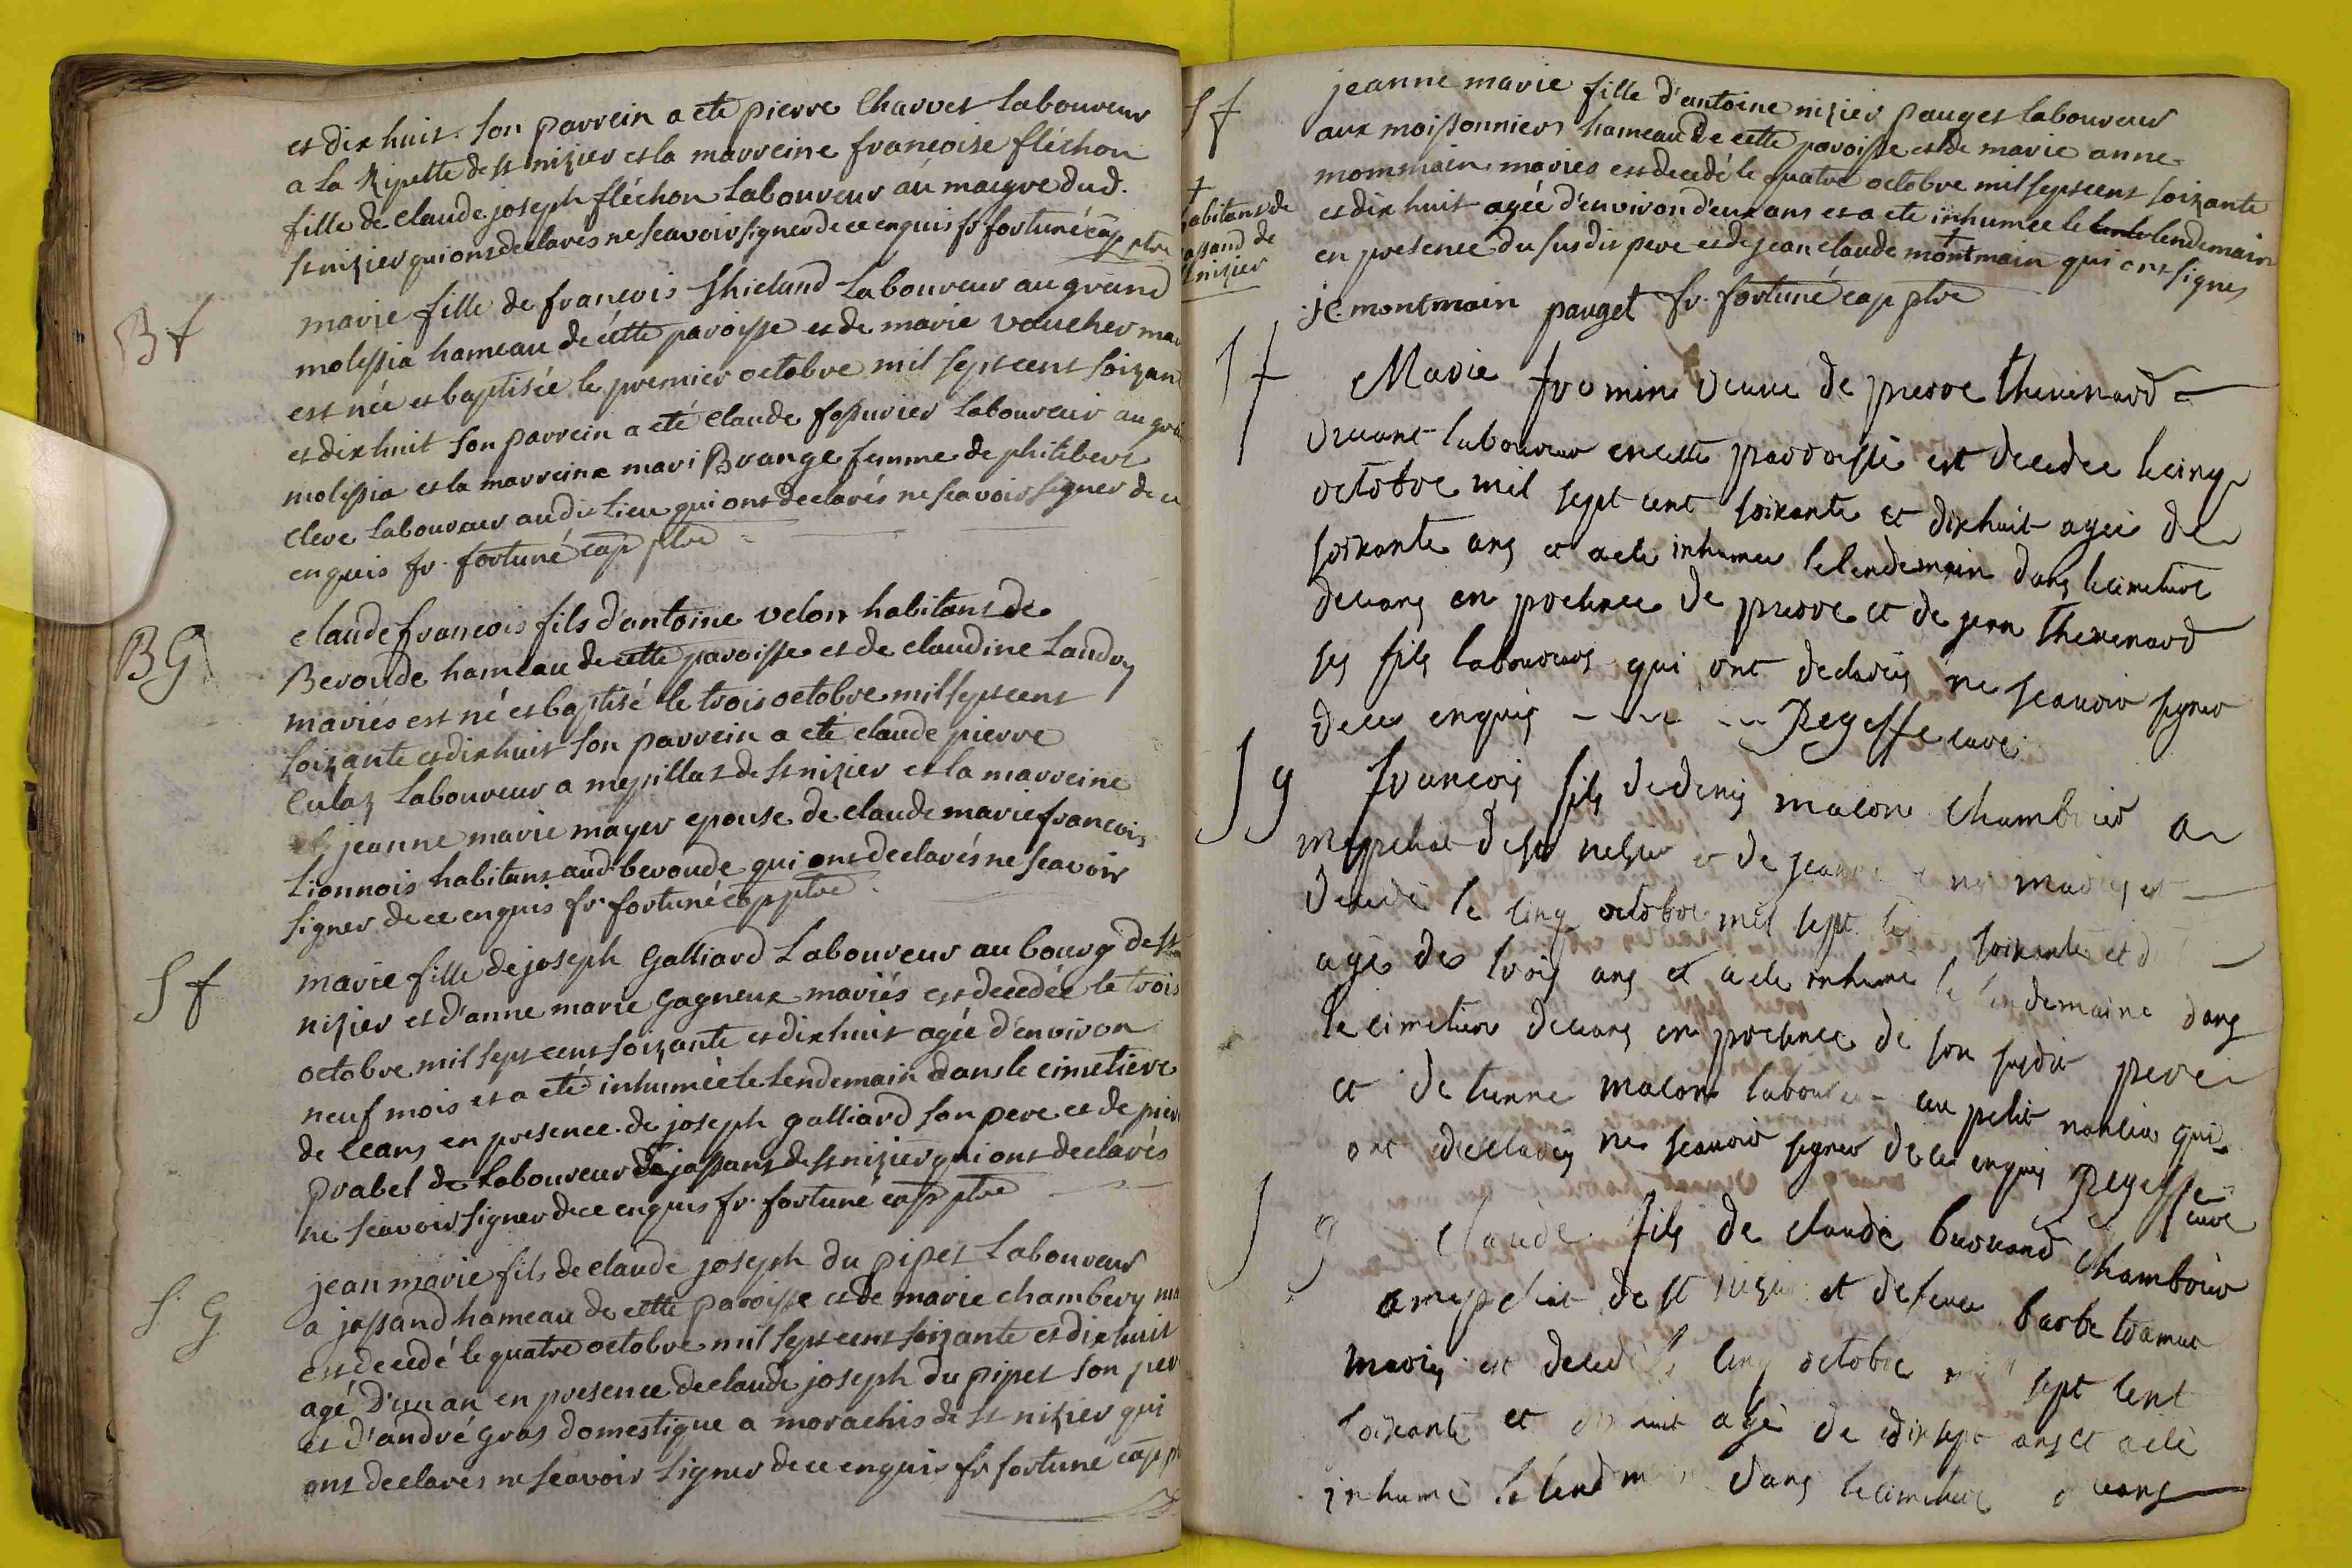 et dix huit. son parrein a eté pierre Charvet laboureur
a la Ripette de st nizier et la marreine francoise fléchon
fille de claude joseph fléchon laboureur au maigre dud.
st nizier qui ont declarés ne scavoir signer de ce enquis fr fortuné cap ptre
B f
marie fille de francois Thieland laboureur au grand
molissia hameau de cette paroisse et de marie voucher mar
est née et baptisée le premier octobre mil sept cent soixan
et dix huit son parrein a eté claude fossurier laboureur au gra
molissia et la marreine mari Brange femme de philibert
cleve laboureur audit lieu qui ont declarés ne scavoir signer de ce
enquis fr. fortuné cap ptre
BG
claude francois fils d'antoine velon habitant de
Beroude hameau de cette paroisse et de claudine Landry
mariés est né et baptisé le trois octobre mil sept cent
soixante et dix huit son parrein a eté claude pierre
Culaz laboureur a mepillat de st nizier et la marreine
jeanne marie mayer epouse de claude marie francois
Lionnois habitans aud beroude qui ont declarés ne scavoir
signer de ce enquis fr. fortuné cap ptre
S f
marie fille de joseph Galliard Laboureur au bourg de st
nizier et d'anne marie Gagneux mariés est decedée le trois
octobre mil sept cent soixante et dix huit agée d'environ
neuf mois et a eté inhumée le lendemain dans le cimetiere
de ceans en presence de joseph galliard son pere et de pierr
prabel de laboureur de jassans de st nizier qui ont declarés
ne scavoir signer de ce enquis fr. fortuné cap ptre
S. G
jean marie fils de claude joseph du pipet Laboureur
a jassand hameau de cette paroisse et de marie chambery ma
est decedé le quatre octobre mil sept cent soixante et dix huit
agé d'un an en presence de claude joseph du pipet son per
et d'andré Gras domestique a morachis de st nizier qui
ont declarés ne scavoir signer de ce enquis fr fortuné cap pt
S f
jeanne marie fille d'antoine nizier pauget laboureur
aux moissonniers hameau de cette paroisse et de marie anne
mommain mariés est decedé le quatre octobre mil sept cent soixante
et dix huit agée d'environ deux ans et a eté inhumée le lendemain
en presence du susdit pere et de jean claude montmain + qui ont signes
+
habitans de
jassand de
st nizier
jc montmain pauget fr. fortuné cap ptre
S f
Marie fromin veuve de pierre thevenard
vivant laboureur en cette parroisse est decedee le cinq
octobre mil sept cent soixante et dix huit agee de
soixante ans et a ete inhumee le lendemain dans le cimetiere
de ceans en presence de pierre et de jean thevenard
ses fils laboureurs qui ont declarés ne scavoir signer
de ce enquis Regeffe curé
S g
francois fils de denis macon chambrier a
mepeliat de st nizier et de jeanne mariés est
decedé le cinq octobre mil sept soixante et
agé de trois ans et a ete inhumé le lendemaine dans
le cimetiere de ceans en presence de son susdit pere
et detienne macon laboureur au petit qui
ont declarés ne scavoir signer de ce enquis Regeffe
curé
S g
claude fils de claude buvrand chambrier
a mepeliat de st nizier et de feue barbe tramut
mariés est decedé le cinq octobre mil sept cent
soixante et dix huit agé de dix sept ans et a eté
inhumé le lendm dans le cimetiere ceans